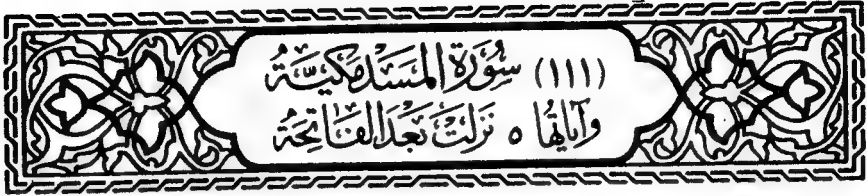 (١١١) سُورَةُ المَسَدِ مَكِيَّةٌ
وَآيَاتُهَا ٥ نَزَلَتْ بَعْدَ الفَاتِحَةِ